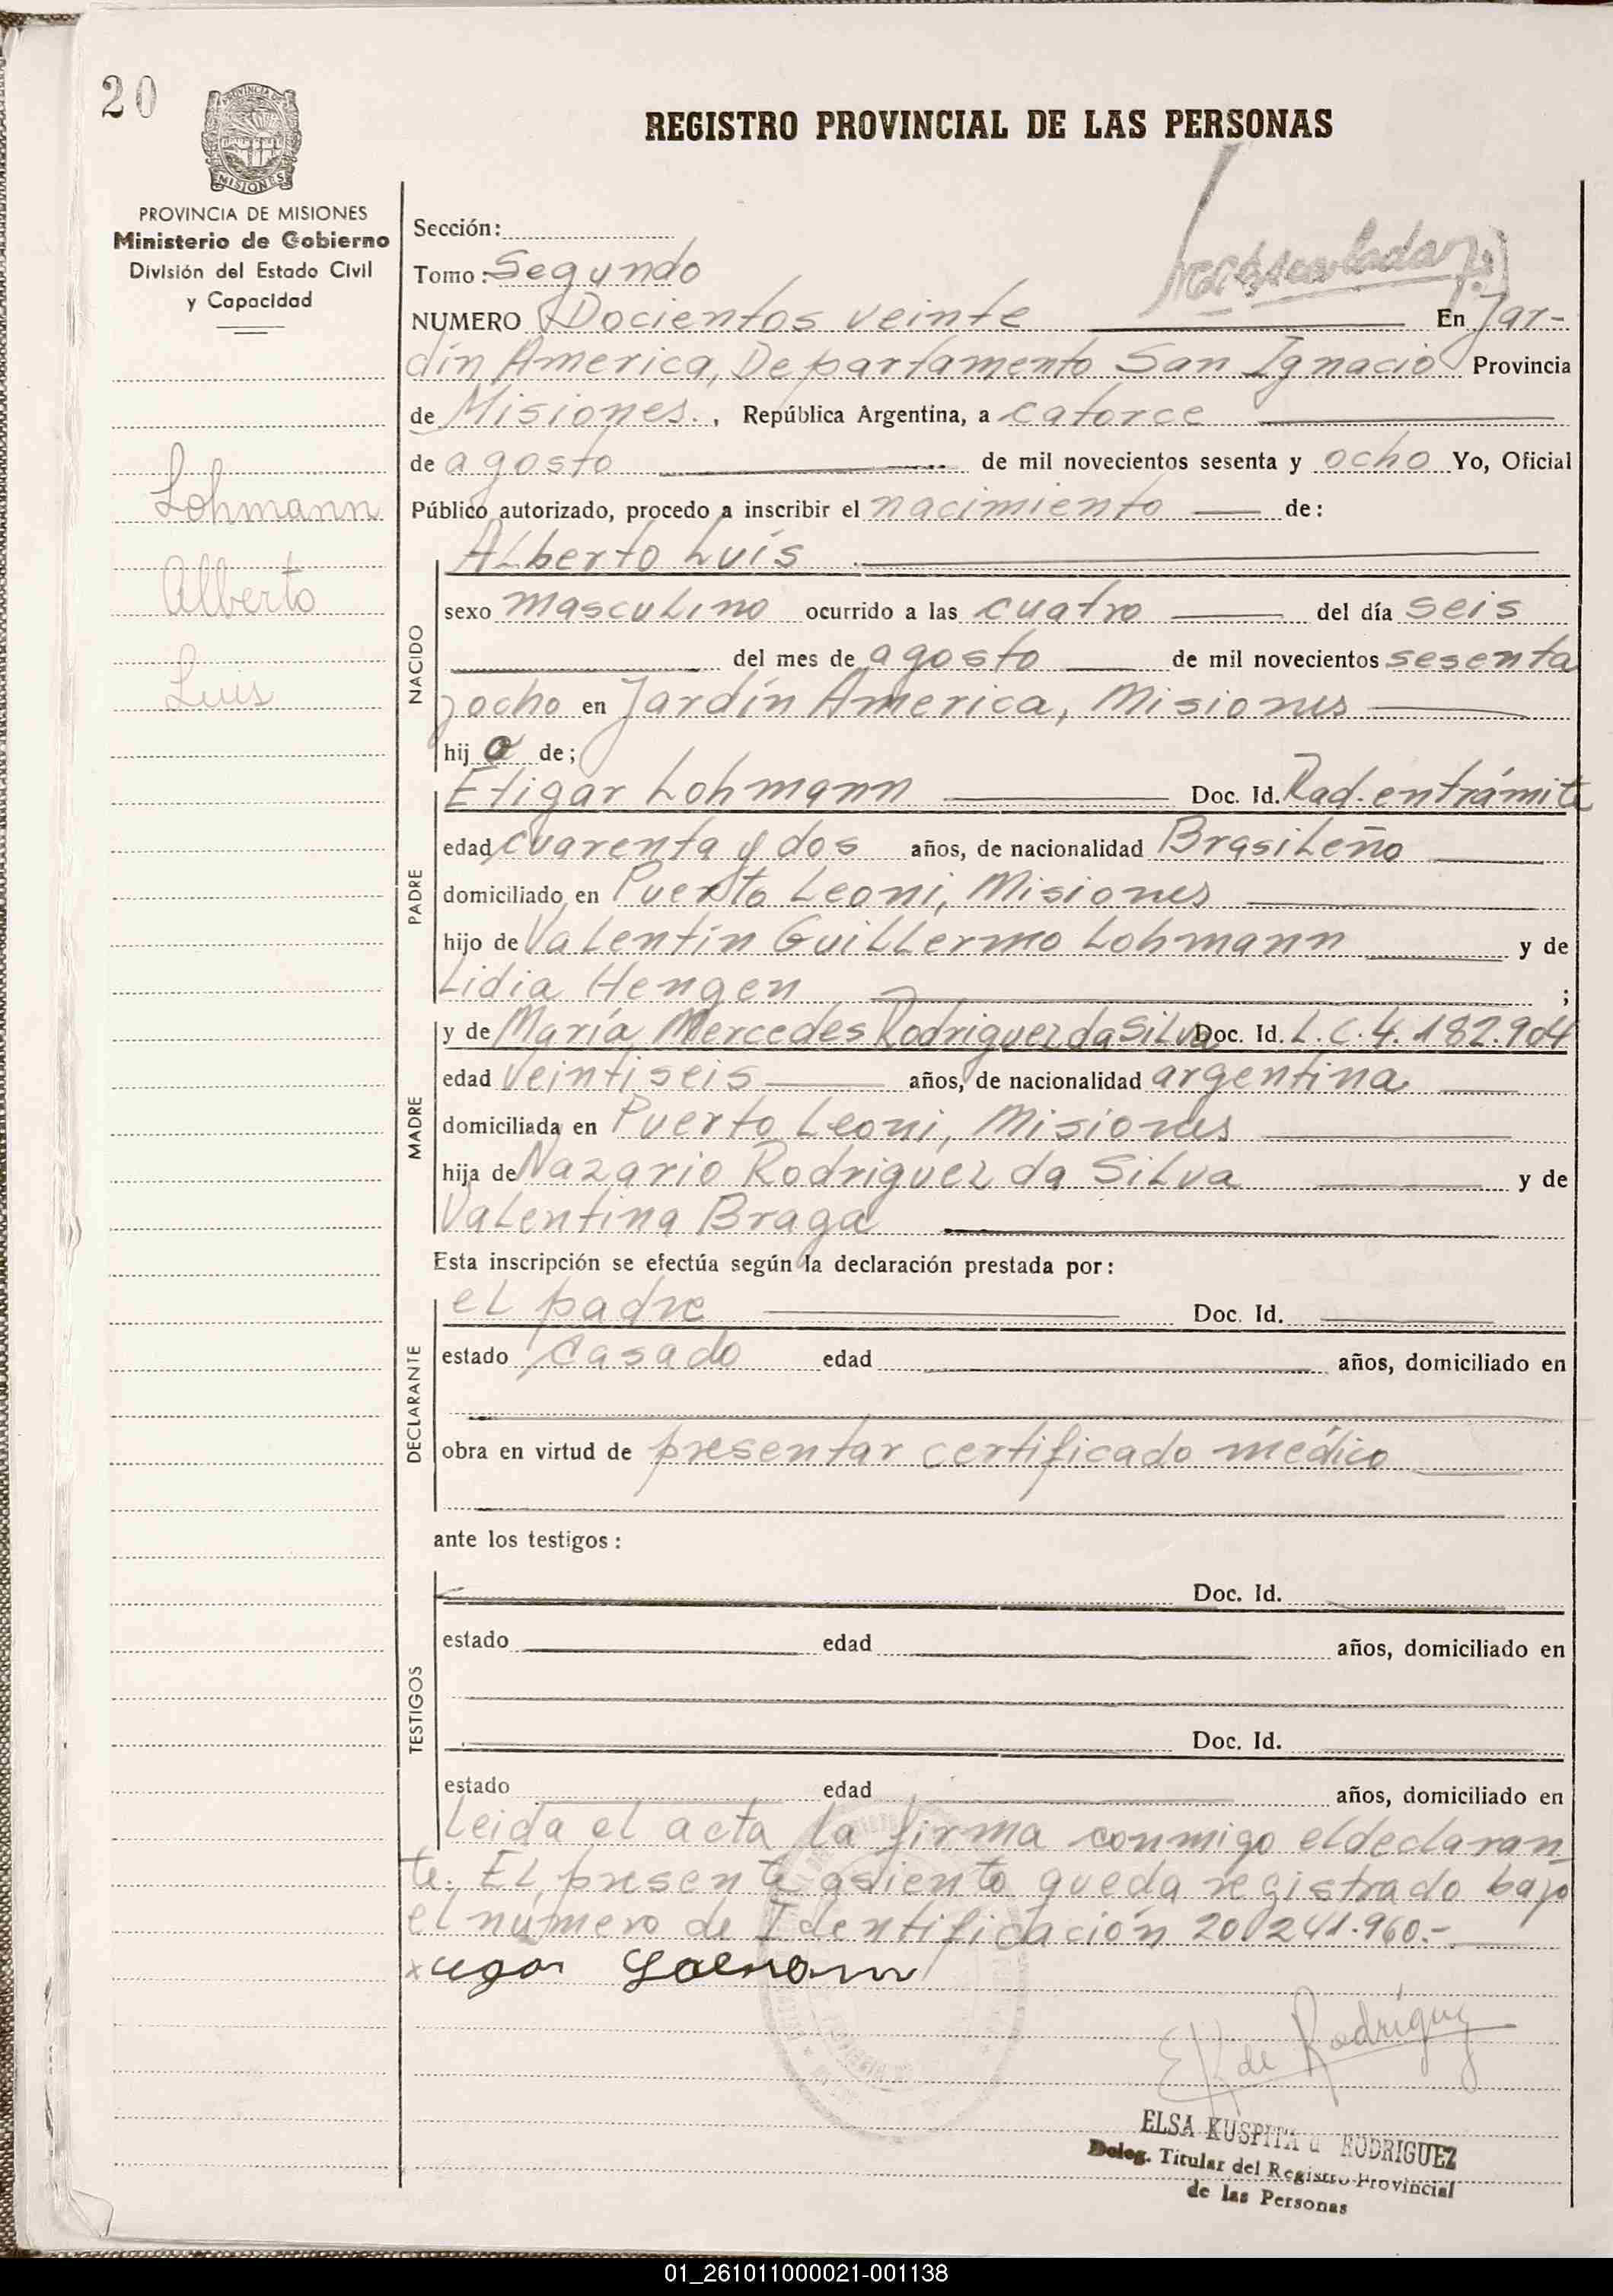 20
REGISTRO PROVINCIAL DE LAS PERSONAS
PROVINCIA DE MISIONES
Ministerio de Gobierno
División del Estado Civil
y Capacidad
Lohmann
Alberto
Luis
Sección:
Tomo: Segundo
NUMERO Docientos veinte En Jar-
dín America, Departamento San Ignacio Provincia
de Misiones., República Argentina, a catorce
de agosto de mil novecientos sesenta y ocho Yo, Oficial
Público autorizado, procedo a inscribir el nacimiento de:
Alberto Luis
NACIDO
sexo masculino ocurrido a las cuatro del día seis
del mes de agosto de mil novecientos sesenta
y ocho en Jardín America, Misiones
hijo de;
PADRE
Etigar Lohmann Doc. Id. Rad. en trámite
edad cuarenta y dos años, de nacionalidad Brasileño
domiciliado en Puerto Leoni, Misiones
hijo de Valentín Guillermo Lohmann y de
Lidia Hengen ;
MADRE
y de María Mercedes Rodriguez da Silva Doc. Id. L.C.4.182.904
edad veintiseis años, de nacionalidad argentina
domiciliada en Puerto Leoni, Misiones
hija de Nazario Rodriguez da Silva y de
Valentina Braga
Esta inscripción se efectúa según la declaración prestada por:
DECLARANTE
el padre Doc. Id.
estado casado edad años, domiciliado en
obra en virtud de presentar certificado médico
ante los testigos:
TESTIGOS
Doc. Id.
estado edad años, domiciliado en
Doc. Id.
estado edad años, domiciliado en
Leida el acta la firma conmigo el declaran-
te. El presente asiento queda registrado bajo
el número de Identificación 20.241.960.-
E K de Rodríguez
ELSA KUSPITA d RODRIGUEZ
Deleg. Titular del Registro Provincial
de las Personas
01_261011000021-001138